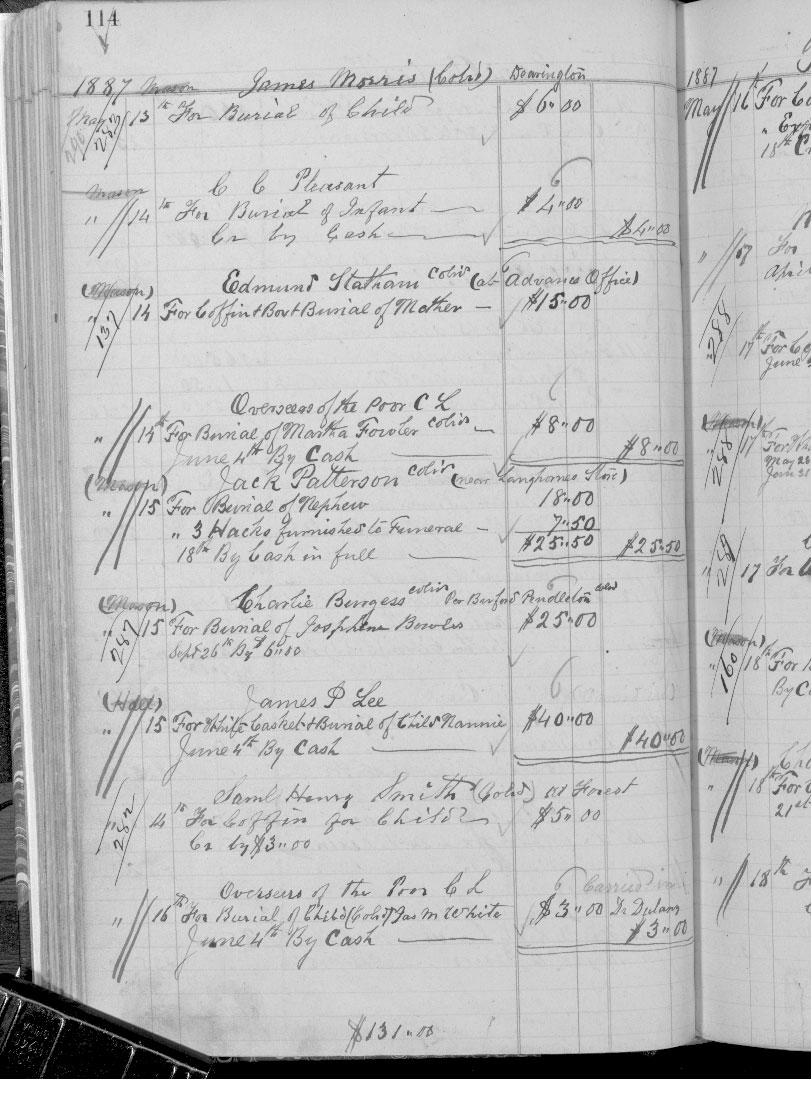 114
1887 Mason James Morris (Col'd) Dearington
May 13th For Burial of Child $6"00
290 283
Mason C C Pleasant
" 14th For Burial of Infant $4"00
Cr by Cash $4"00
(Mason) Edmund Statham col'd (at Advance Office)
" 14 For Coffin & Box & Burial of Mother $15"00
137
Overseers of the Poor C L
" 14th For Burial of Martha Fowler col'd $8"00
June 4th By Cash $8"00
(Mason) Jack Patterson col'd (near Langhornes Store)
" 15 For Burial of Nephew 18"00
" 3 Hacks furnished to Funeral 7"50
18th By Cash in full $25"50 $25"50
(Mason) Charlie Burgess col'd Per Burford Pendleton col'd
" 15 For Burial of Josephine Bowles $25"00
287
Sept 26th By $6"00
(Hall) James P Lee
" 15 For White Casket & Burial of Child Nannie $40"00
June 4th By Cash $40"00
Saml Henry Smith (Col'd) at Forest
" 4th For Coffin for Child $5"00
282
Cr by $3"00
Overseers of the Poor C L Carried in
" 16th For Burial of Child (Col'd) Jas M White $3"00 Dr Dulany
June 4th By Cash $3"00
$131"00
1887
May 16th For
"
18th
" 17 For
April
288
17th For
June
(Mason)
" 17 For
288
May 28
June 25
" 17 For
(Mason)
" 18th For
160
By
(Mason)
" 18th For
21st
" 18th